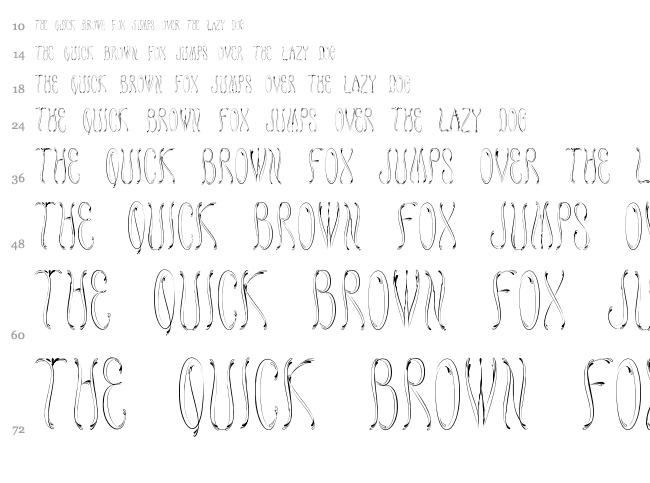 10 THE QUICK BROWN FOX JUMPS OVER THE LAZY DOG
14 THE QUICK BROWN FOX JUMPS OVER THE LAZY DOG
18 THE QUICK BROWN FOX JUMPS OVER THE LAZY DOG
24 THE QUICK BROWN FOX JUMPS OVER THE LAZY DOG
36 THE QUICK BROWN FOX JUMPS OVER THE L
48 THE QUICK BROWN FOX JUMPS OV
60 THE QUICK BROWN FOX JU
72 THE QUICK BROWN FOX